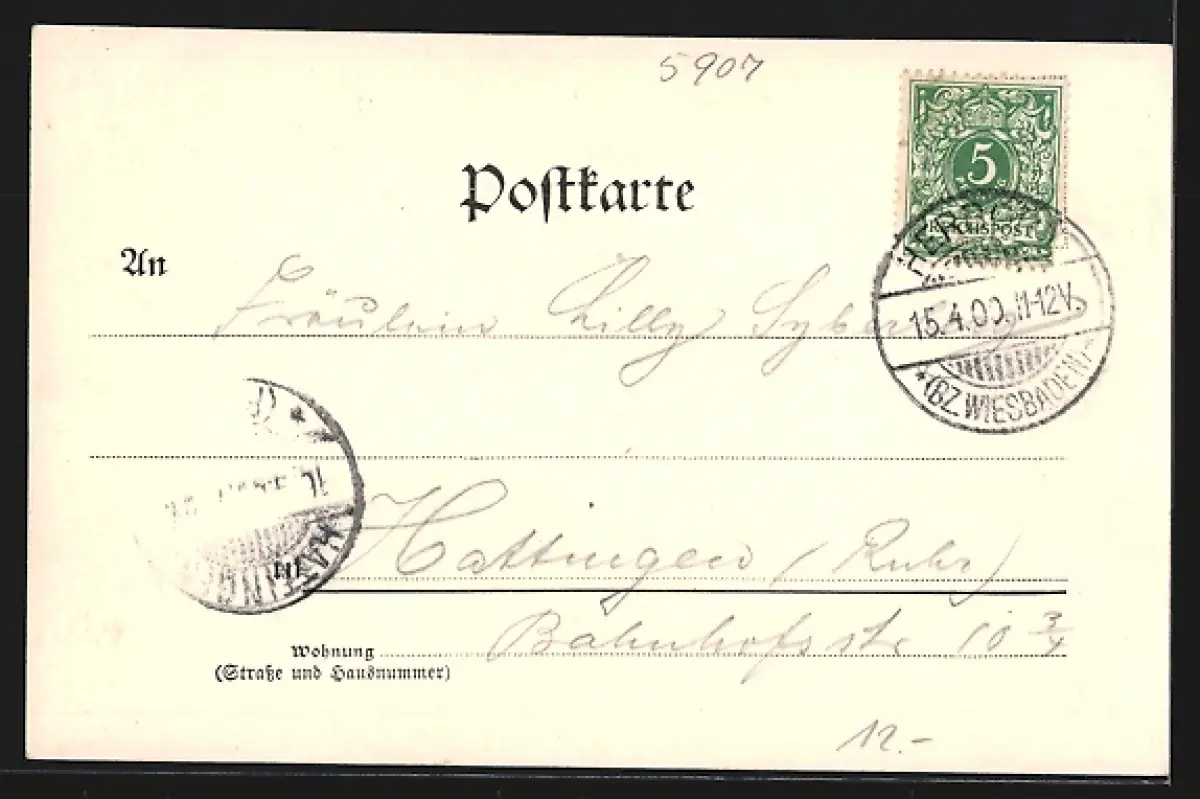 5907
Postkarte
5
REICHSPOST
An
Fräulein Lilly
15.4.00. 11-12V.
*(BZ. WIESBADEN)*
Hattingen (Ruhr)
in
HATTING
Bahnhofstr 10 3/4
Wohnung
(Straße und Hausnummer)
12.-